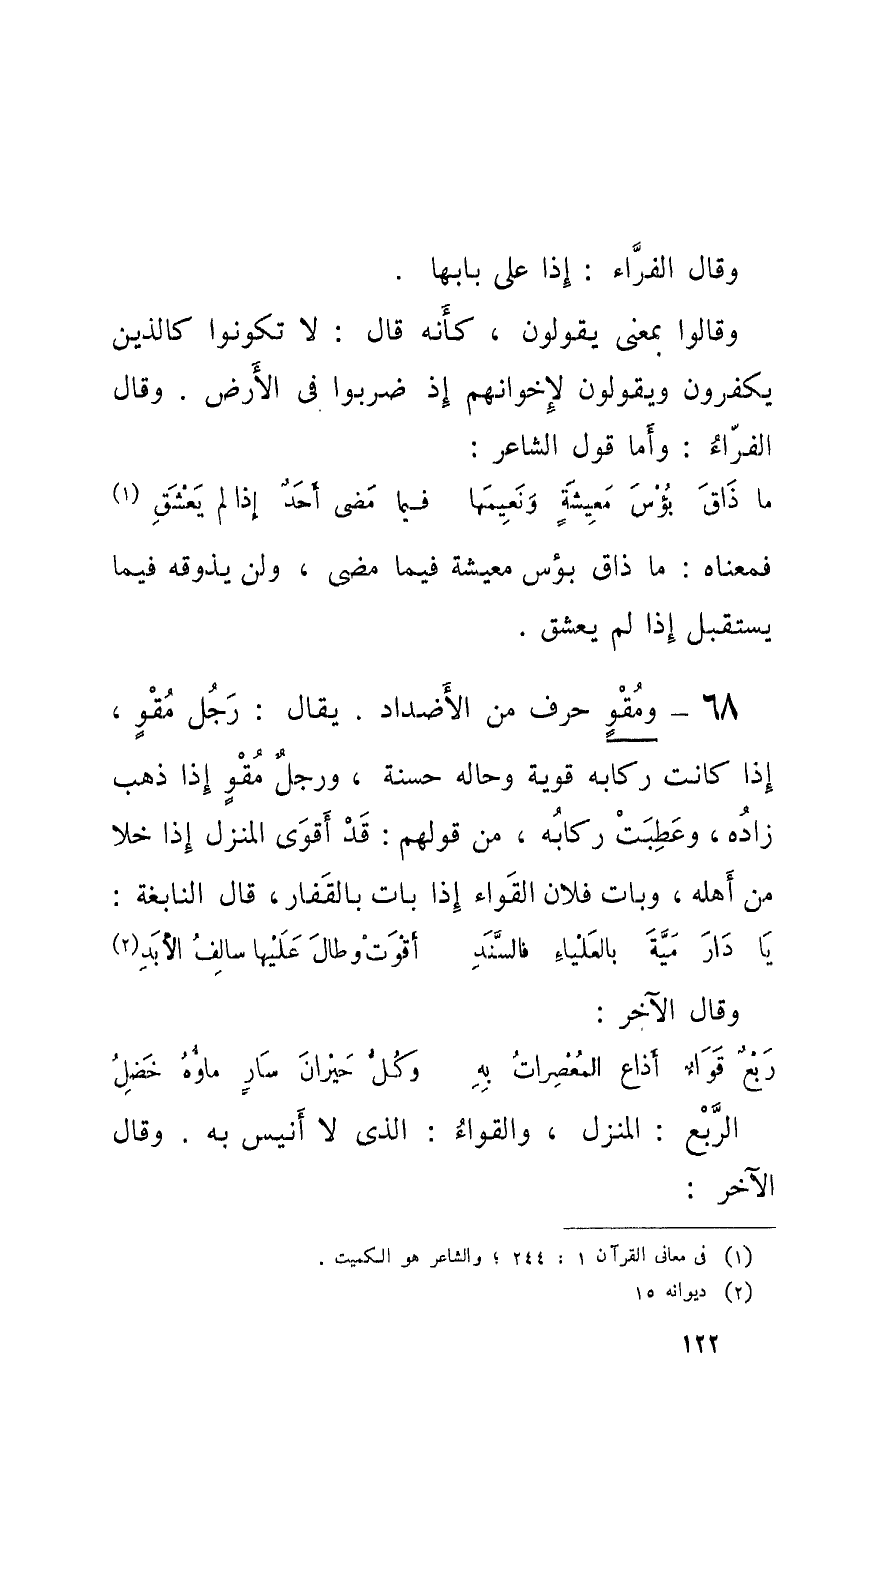 وقال الفرَّاء : إِذا على بابها .
وقالوا بمعنى يقولون ، كأَنه قال : لا تكونوا كالذين
يكفرون ويقولون لإِخوانهم إِذ ضربوا فى الأَرض . وقال
الفرّاءُ : وأَما قول الشاعر :
ما ذَاقَ بُؤْسَ مَعِيشَةٍ وَنَعِيمَها فيما مَضى أَحَدٌ إذا لم يَعْشَقِ (١)
فمعناه : ما ذاق بؤس معيشة فيما مضى ، ولن يذوقه فيما
يستقبل إِذا لم يعشق .
٦٨ – ومُقْوٍ حرف من الأَضداد . يقال : رَجُل مُقْوٍ ،
إِذا كانت ركابه قوية وحاله حسنة ، ورجلٌ مُقْوٍ إِذا ذهب
زادُه ، وعَطِبَتْ ركابُه ، من قولهم : قَدْ أَقوَى المنزل إِذا خلا
من أَهله ، وبات فلان القَواء إِذا بات بالقَفار ، قال النابغة :
يَا دَارَ مَيَّةَ بالعَلْياءِ فالسَّنَدِ أقْوَتْ وطالَ عَلَيْها سالِفُ الأبَدِ (٢)
وقال الآخِر :
رَبْعٌ قَوَاءٌ أذاع المُعْصِراتُ بِهِ وَكُلُّ حَيْرانَ سَارٍ ماؤُهُ خَضَلُ
الرَّبْع : المنزل ، والقواءُ : الذى لا أَنيس به . وقال
الآخر :
(١) فى معانى القرآن ١ : ٢٤٤ ؛ والشاعر هو الكميت .
(٢) ديوانه ١٥
١٢٢